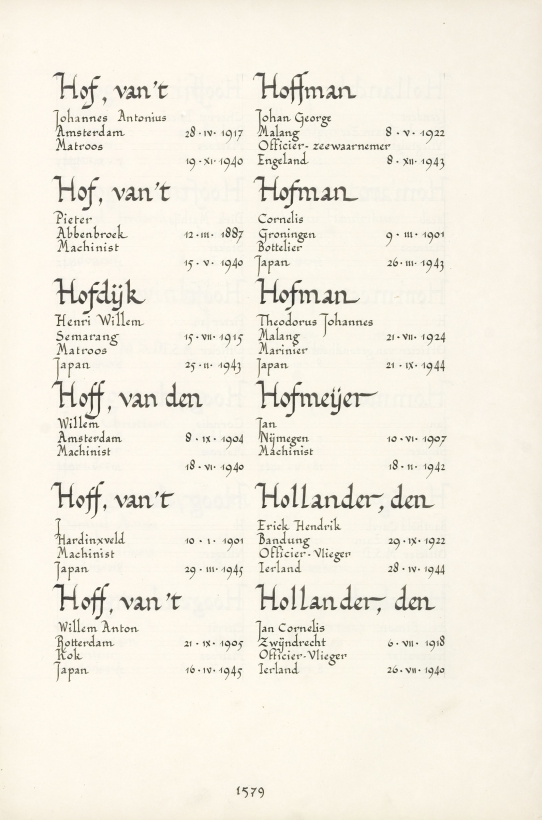 Hof, van't
Johannes Antonius
Amsterdam 28·IV·1917
Matroos
19·XI·1940
Hof, van't
Pieter
Abbenbroek 12·III·1887
Machinist
15·V·1940
Hofdijk
Henri Willem
Semarang 15·VII·1915
Matroos
Japan 25·II·1943
Hoff, van den
Willem
Amsterdam 8·IX·1904
Machinist
18·VI·1940
Hoff, van't
J
Hardinxveld 10·I·1901
Machinist
Japan 29·III·1945
Hoff, van't
Willem Anton
Rotterdam 21·IX·1905
Kok
Japan 16·IV·1945
Hoffman
Johan George
Malang 8·V·1922
Officier-zeewaarnemer
Engeland 8·XII·1943
Hofman
Cornelis
Groningen 9·III·1901
Bottelier
Japan 26·III·1943
Hofman
Theodorus Johannes
Malang 21·VII·1924
Marinier
Japan 21·IX·1944
Hofmeijer
Jan
Nijmegen 10·VI·1907
Machinist
18·II·1942
Hollander, den
Erick Hendrik
Bandung 29·IX·1922
Officier-Vlieger
Ierland 28·IV·1944
Hollander, den
Jan Cornelis
Zwijndrecht 6·VII·1918
Officier-Vlieger
Ierland 26·VII·1940
1579